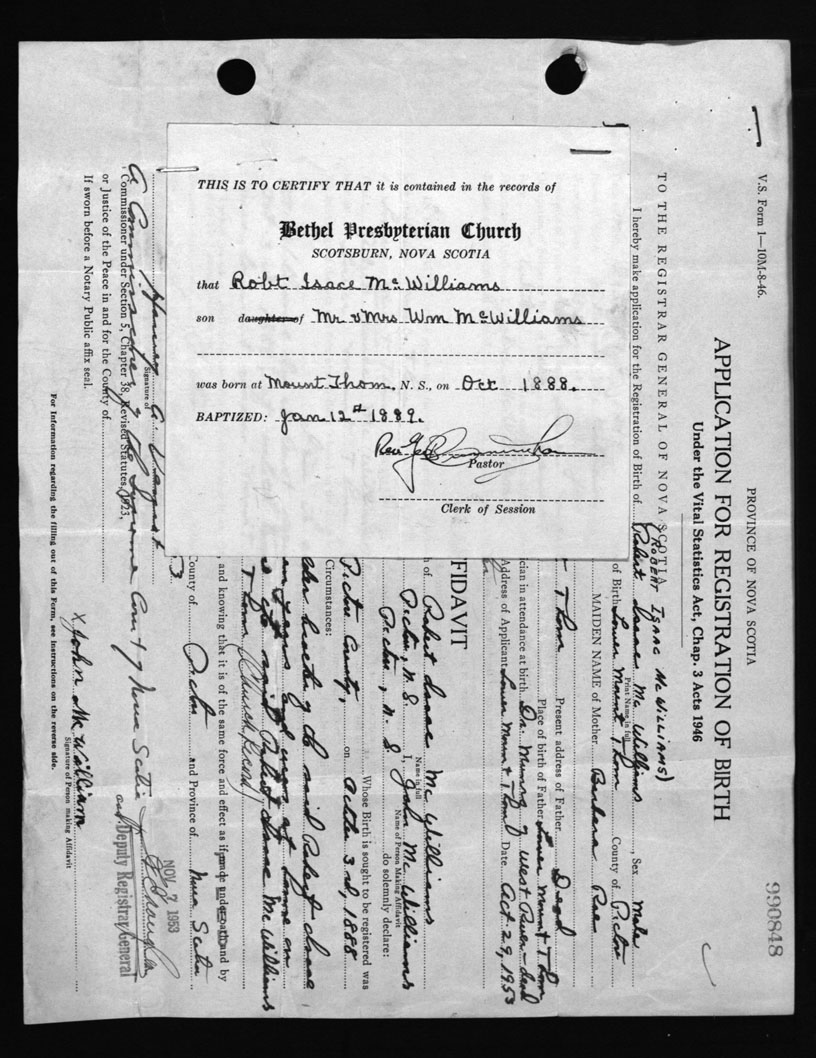 THIS IS TO CERTIFY THAT it is contained in the records of
Bethel Presbyterian Church
SCOTSBURN, NOVA SCOTIA
that Robt Isace McWilliams
son daughter of Mr & Mrs Wm McWilliams
was born at Mount Thom, N. S., on Oct 1888.
BAPTIZED: Jan 12th 1889.
Rev. Geo
Pastor
Clerk of Session
V.S. Form 1—10M-8-46.
PROVINCE OF NOVA SCOTIA
990848
APPLICATION FOR REGISTRATION OF BIRTH
Under the Vital Statistics Act, Chap. 3 Acts 1946
TO THE REGISTRAR GENERAL OF NOVA SCOTIA
(ROBERT ISAAC McWILLIAMS)
I hereby make application for the Registration of Birth of Robert Isaac McWilliams, Sex Male
Print Name in full
of Birth Lower Mount Thom County of Pictou
MAIDEN NAME of Mother Barbara Rae
Thom Present address of Father Dead
Place of birth of Father Lower Mount Thom
ician in attendance at birth Dr. Munro of West River - dead
Address of Applicant Lower Mount Thom Date Oct. 29, 1953
FIDAVIT
h of Robert Isaac McWilliams
Name in full
Pictou, N.S. I, John McWilliams
Name of Person Making Affidavit
Pictou, N. S do solemnly declare:
Whose Birth is sought to be registered was
Pictou County, on October 3rd, 1888
Circumstances:
brother of the said Robert Isaac
years and at home on
said Robert Isaac McWilliams
Thom (Church Record)
, and knowing that it is of the same force and effect as if made under oath and by
County of Pictou and Province of Nova Scotia
3
Signature of
A Commissioner of the Supreme Court of Nova Scotia
Commissioner under Section 5, Chapter 38, Revised Statutes, 1923,
or Justice of the Peace in and for the County of
If sworn before a Notary Public affix seal.
NOV 7 1953
Deputy Registrar General
X John McWilliam
Signature of Person making Affidavit
For Information regarding the filling out of this Form, see instructions on the reverse side.